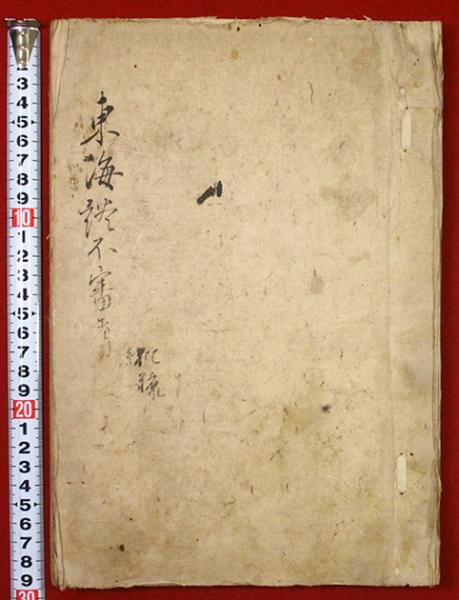 東海談不審考
3
4
5
6
7
8
9
10
1
2
3
4
5
6
7
8
9
20
1
2
3
4
5
6
7
8
9
30